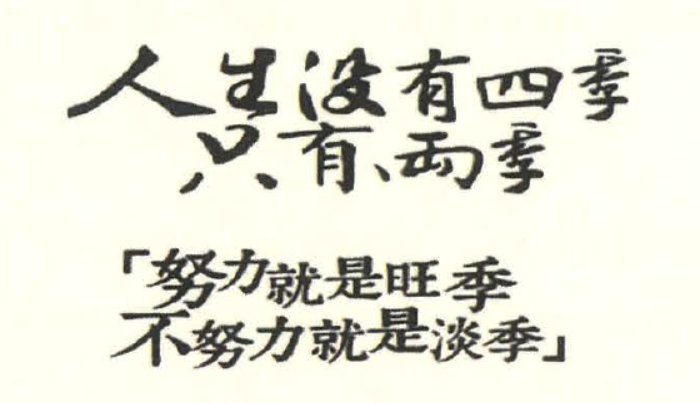 人生没有四季
只有、两季
「努力就是旺季
不努力就是淡季」